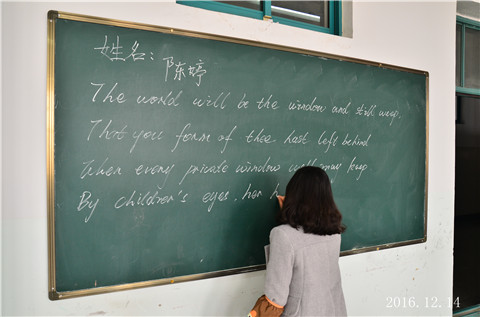 姓名:陈婷
The world will be the window and still weep.
That you form of thee hast left behind
When every private window well may keep
By children's eyes, her h
2016.12.14